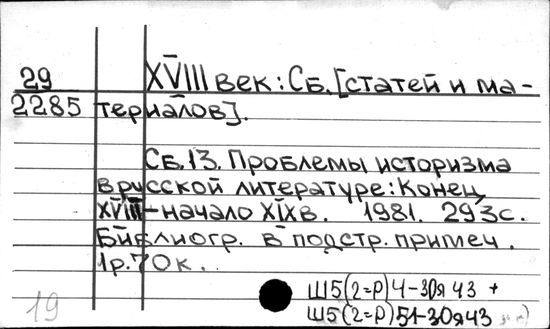 29 XVIII век: Сб. [статей и ма-
2285 териалов].
Сб. 13. Проблемы историзма
в русской литературе: Конец
XVIII – начало XIX в. 1981. 293 с.
Библиогр. в подстр. примеч.
1 р. 70 к.
Ш5(2=Р)4-30я43 +
Ш5(2=Р)51-30я43
19